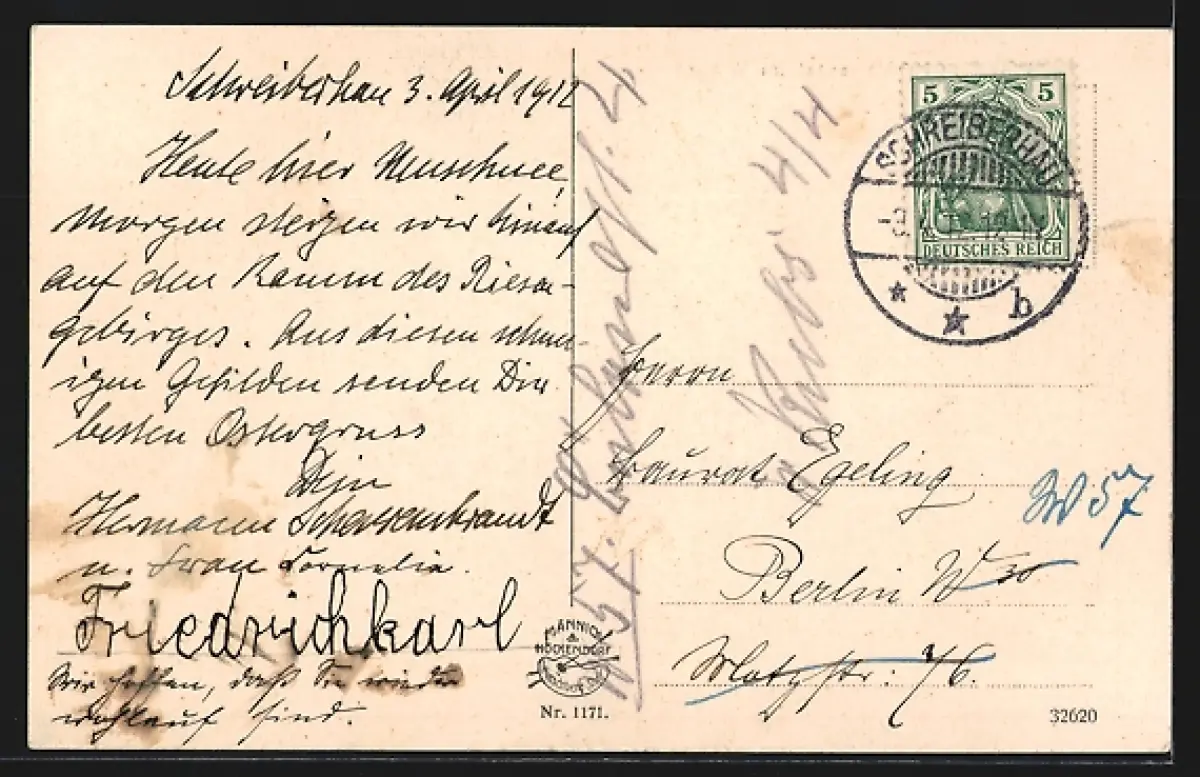 Schreiberhau 3. April 1912
Heute hier Neuschnee,
morgen steigen wir hinauf
auf den Kamm des Riesen-
gebirges. Aus diesen schnee-
igen Gefilden senden Dir
besten Ostergruss
Dein
Hermann
u. Frau Cornelia.
Friedrichkarl
Wir hoffen, daß Sie wieder
wohlauf sind.
5 5
DEUTSCHES REICH
SCHREIBERHAU
b
4/4
Herrn
Baurat Egeling
W 57
Berlin W 30
Motzstr: 76.
W 57.
MANNICH
&
HÖCKENDORF
Nr. 1171.
32620